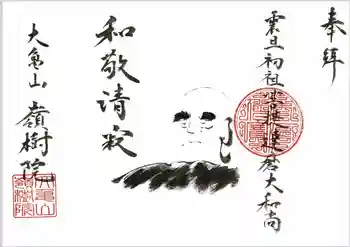 奉拝
震旦初祖菩提達磨大和尚
和敬清寂
大亀山
嶺樹院